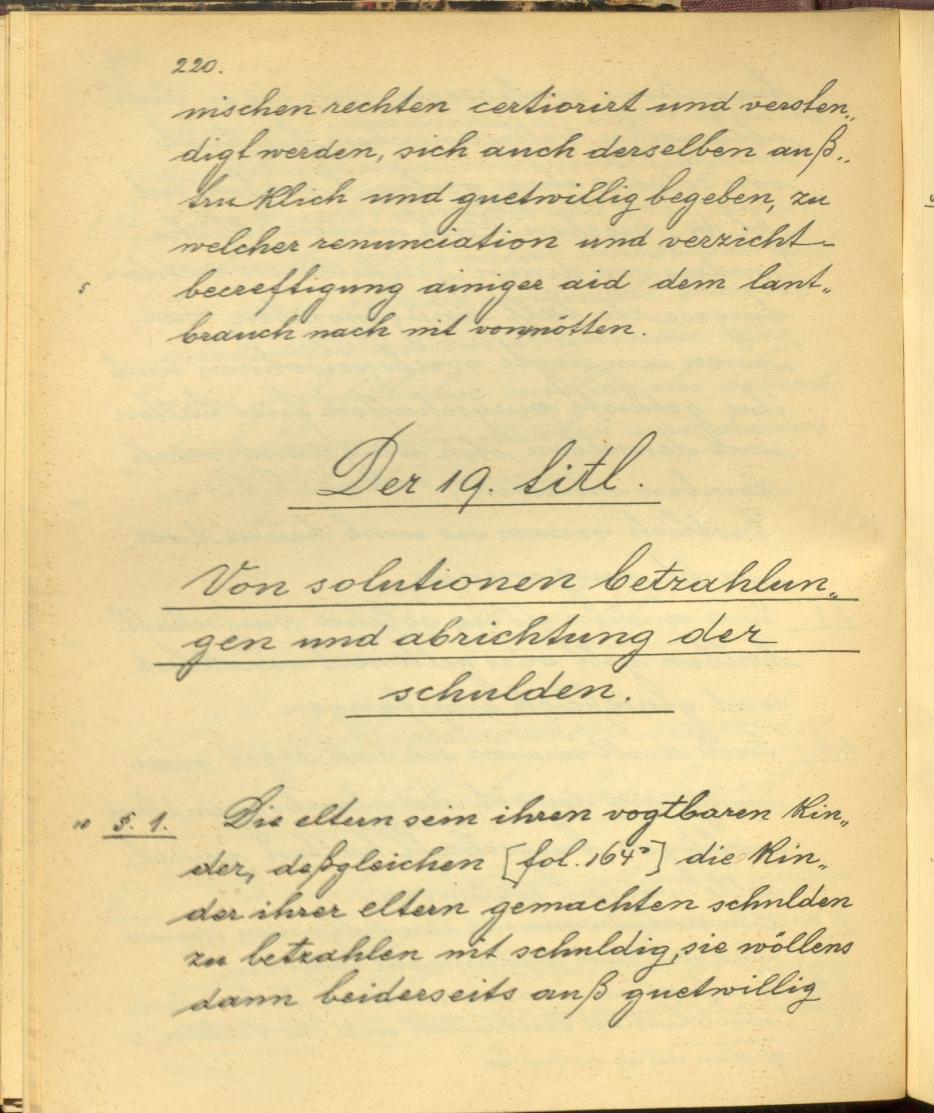 220.
nischen rechten certiorirt und versten„
digt werden, sich auch derselben auß„
truklich und guetwillig begeben, zu
welcher renunciation und verzicht-
5 becreftigung ainiger aid dem lant„
brauch nach nit vonnötten.
Der 19. titl.
Von solutionen betzahlun„
gen und abrichtung der
schulden.
10 §. 1. Die eltern sein ihren vogtbaren kin„
der, deßgleichen [fol. 164ᵛ] die kin„
der ihrer eltern gemachten schulden
zu betzahlen nit schuldig, sie wöllens
dann beiderseits auß guetwillig